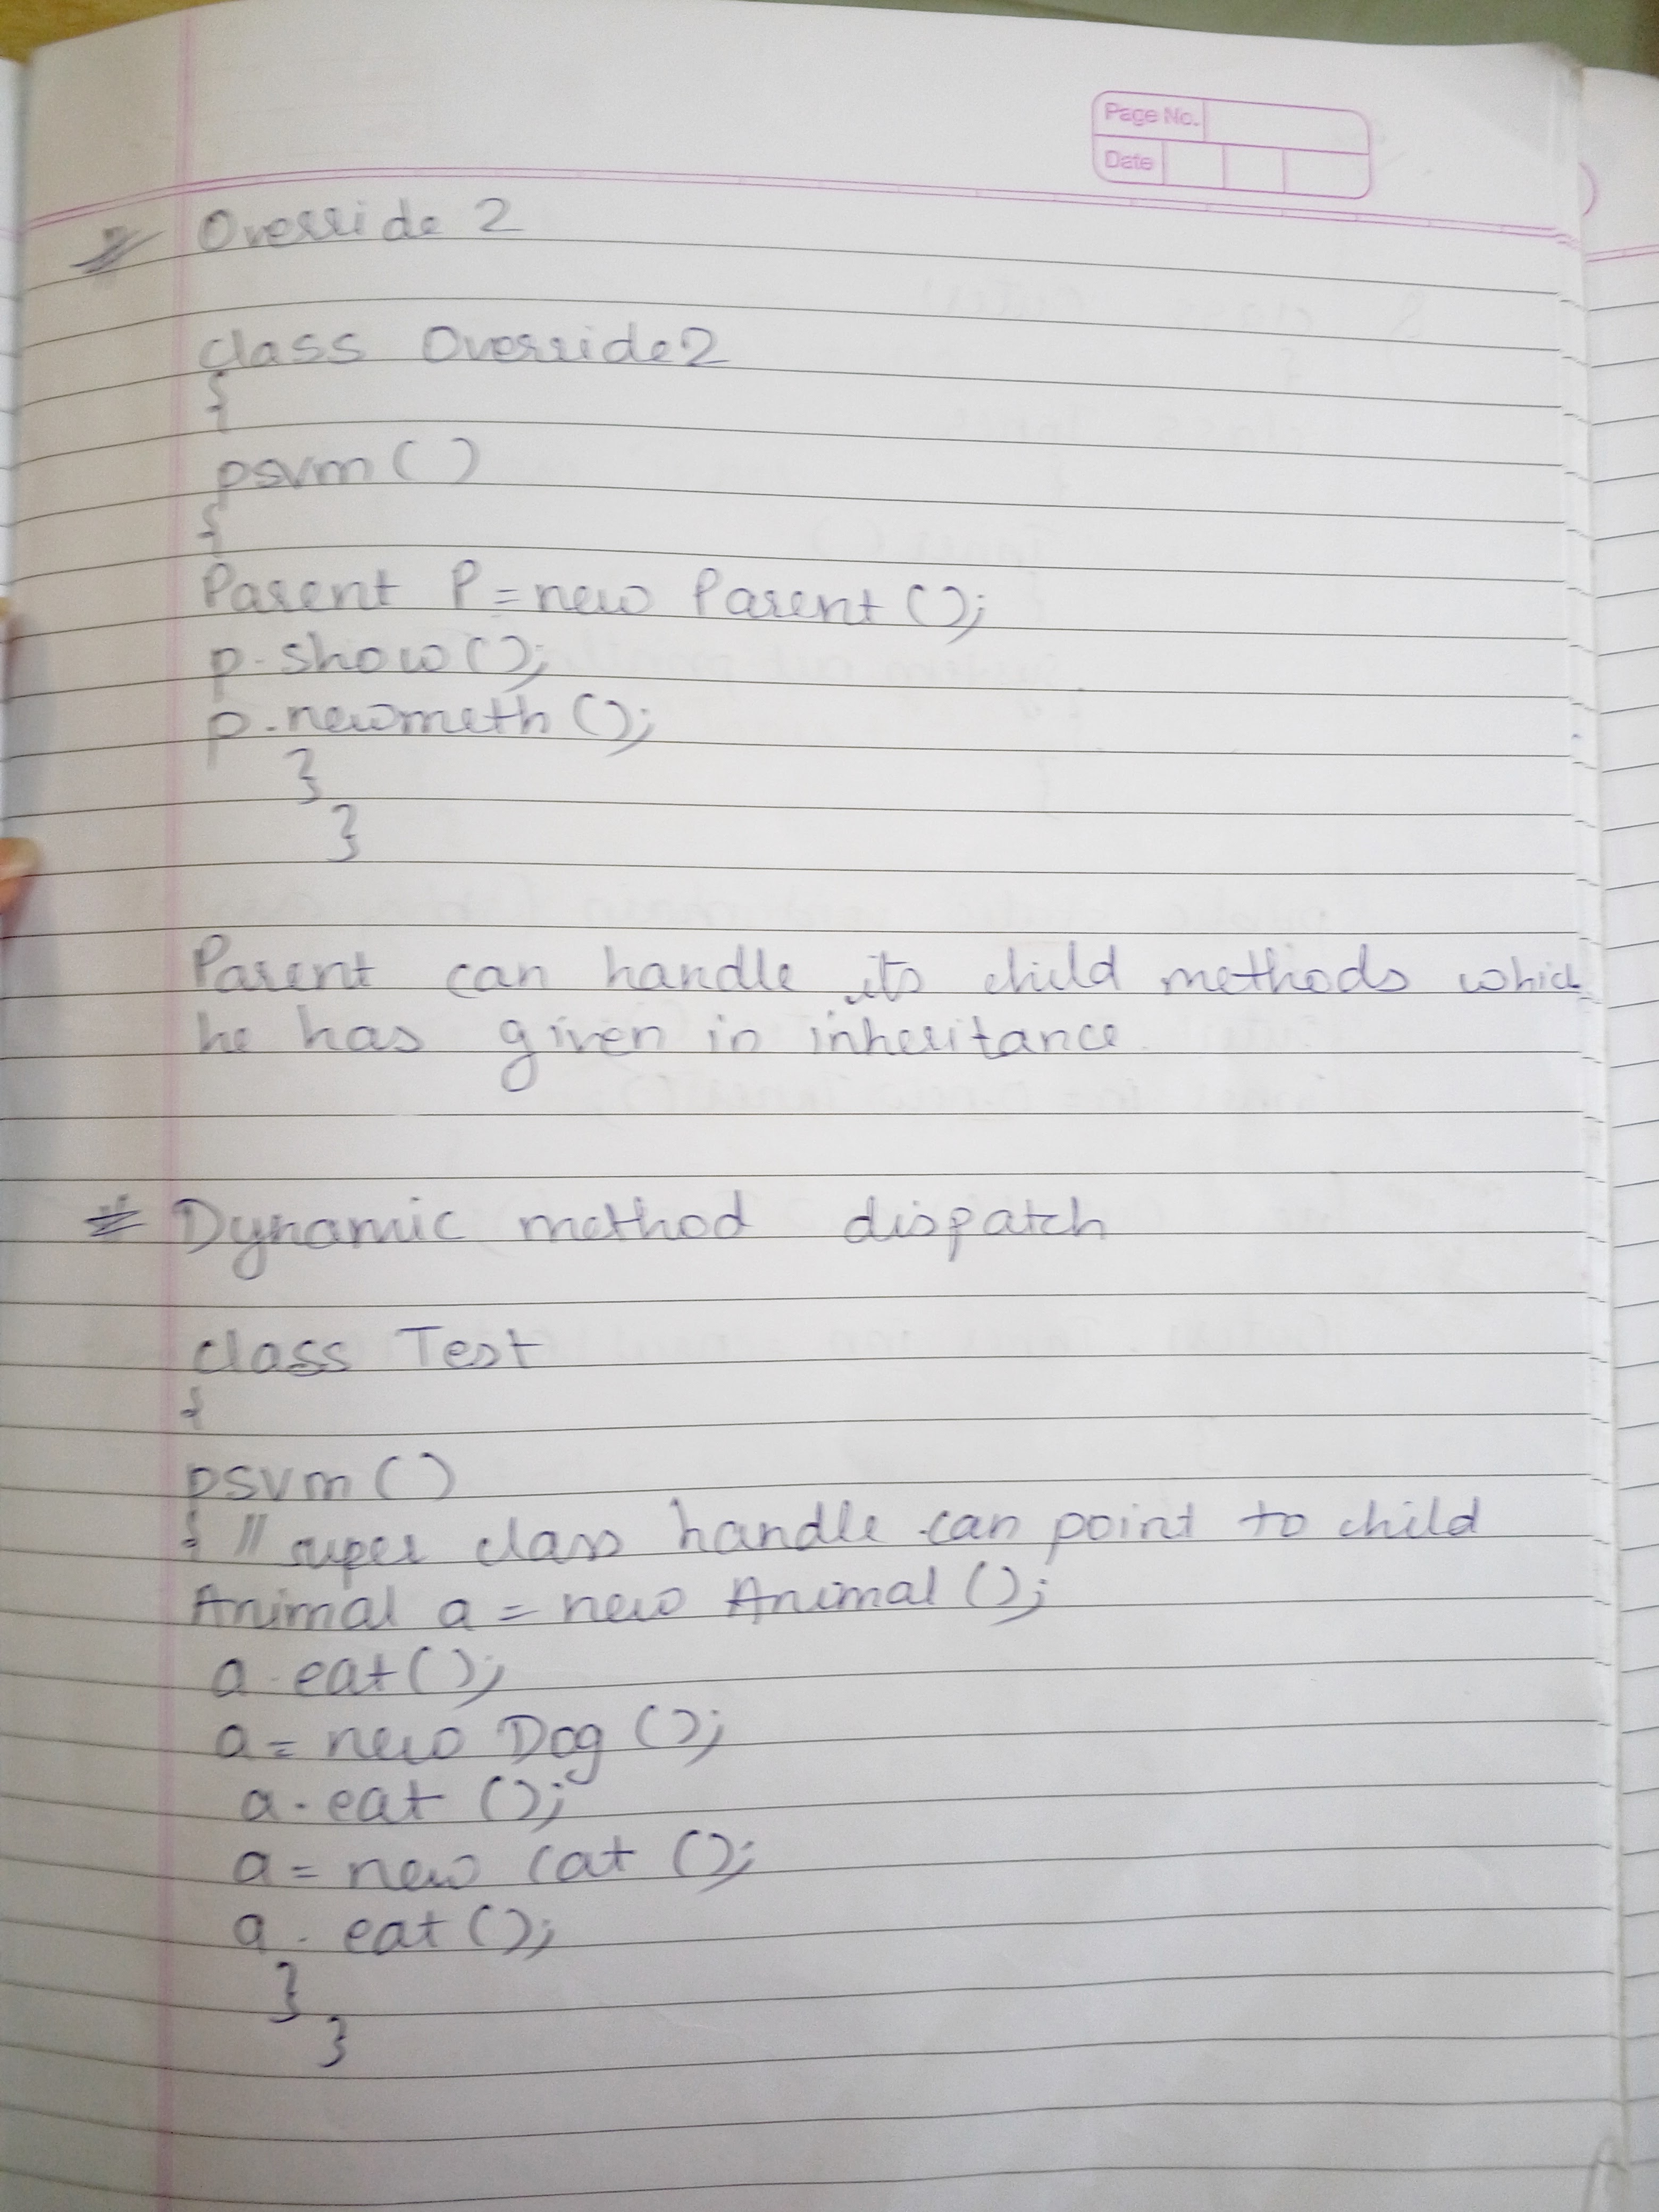 Page No.
Date
Override 2
class Override2
{
psvm ( )
{
Parent P = new Parent ();
p. show ();
p. newmeth ();
}
}
Parent can handle its child methods which
he has given in inheritance.
Dynamic method dispatch
class Test
{
psvm ( )
{ // super class handle can point to child
Animal a = new Animal ();
a. eat ();
a = new Dog ();
a. eat ();
a = new Cat ();
a. eat ();
}
}